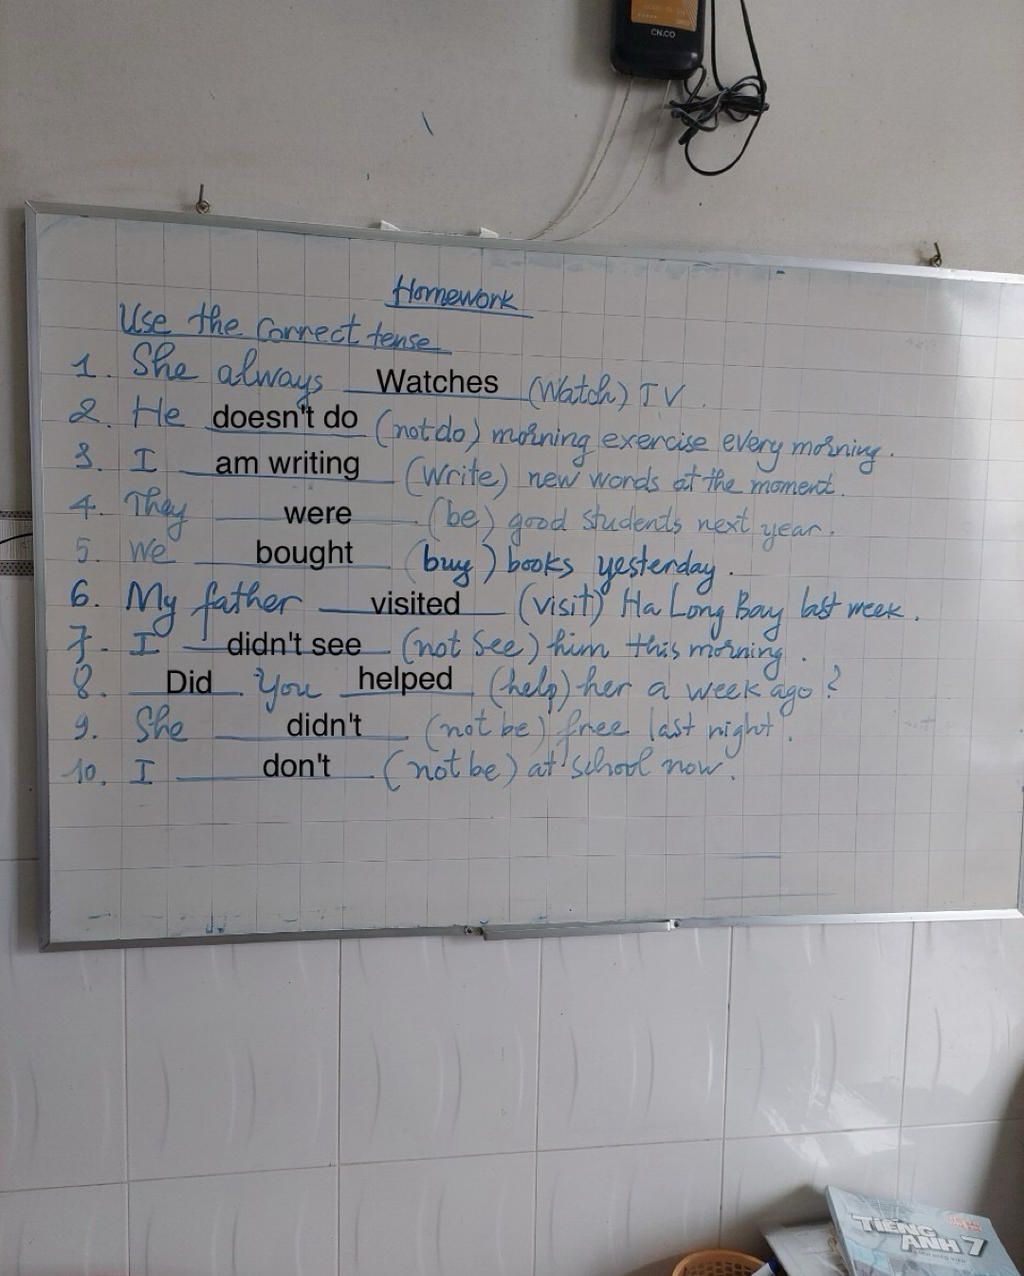 CN.CO
Homework
Use the correct tense
1. She always Watches (Watch) TV.
2. He doesn't do (not do) morning exercise every morning.
3. I am writing (Write) new words at the moment.
4. They were (be) good students next year.
5. We bought (buy) books yesterday.
6. My father visited (visit) Ha Long Bay last week.
7. I didn't see (not see) him this morning.
8. Did you helped (help) her a week ago?
9. She didn't (not be) free last night.
10. I don't (not be) at school now.
TIẾNG
ANH 7